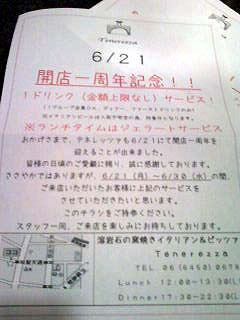 Tenerezza
6/21
開店一周年記念！！
1ドリンク（金額上限なし）サービス！
※ランチタイムはジェラートサービス
おかげさまで、テネレッツァも6/21にて開店一周年を
迎えることが出来ました。
皆様の日頃のご愛顧に賜り、誠に感謝しております。
ささやかではありますが、6/21（月）～6/30（水）の間、
ご来店いただいたお客様に上記のサービスを
させていただきたいと思います。
このチラシをご持参ください。
スタッフ一同、ご来店を楽しみにお待ちしております。
溶岩石の窯焼きイタリアン&ピッツァ
Tenerezza
TEL.06(6450)
Lunch 12:00~13:
Dinner17:30~22: